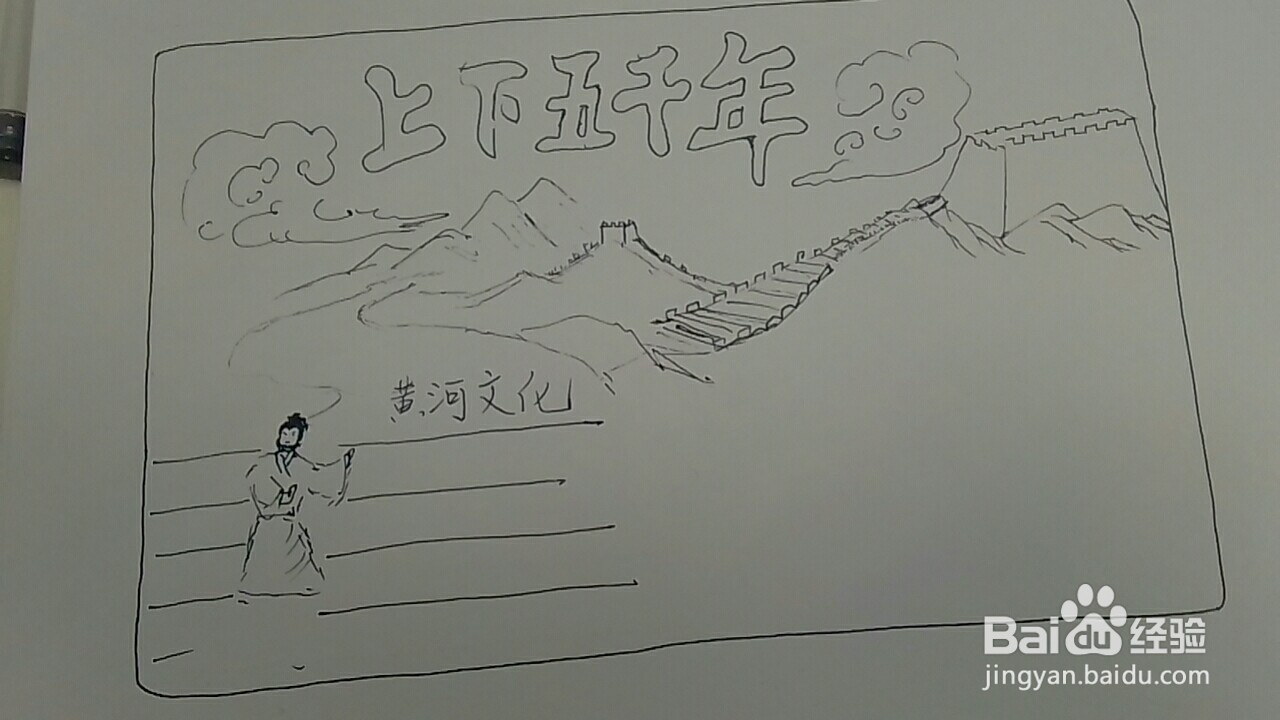 上下五千年
黄河文化
Baidu经验
jingyan.baidu.com